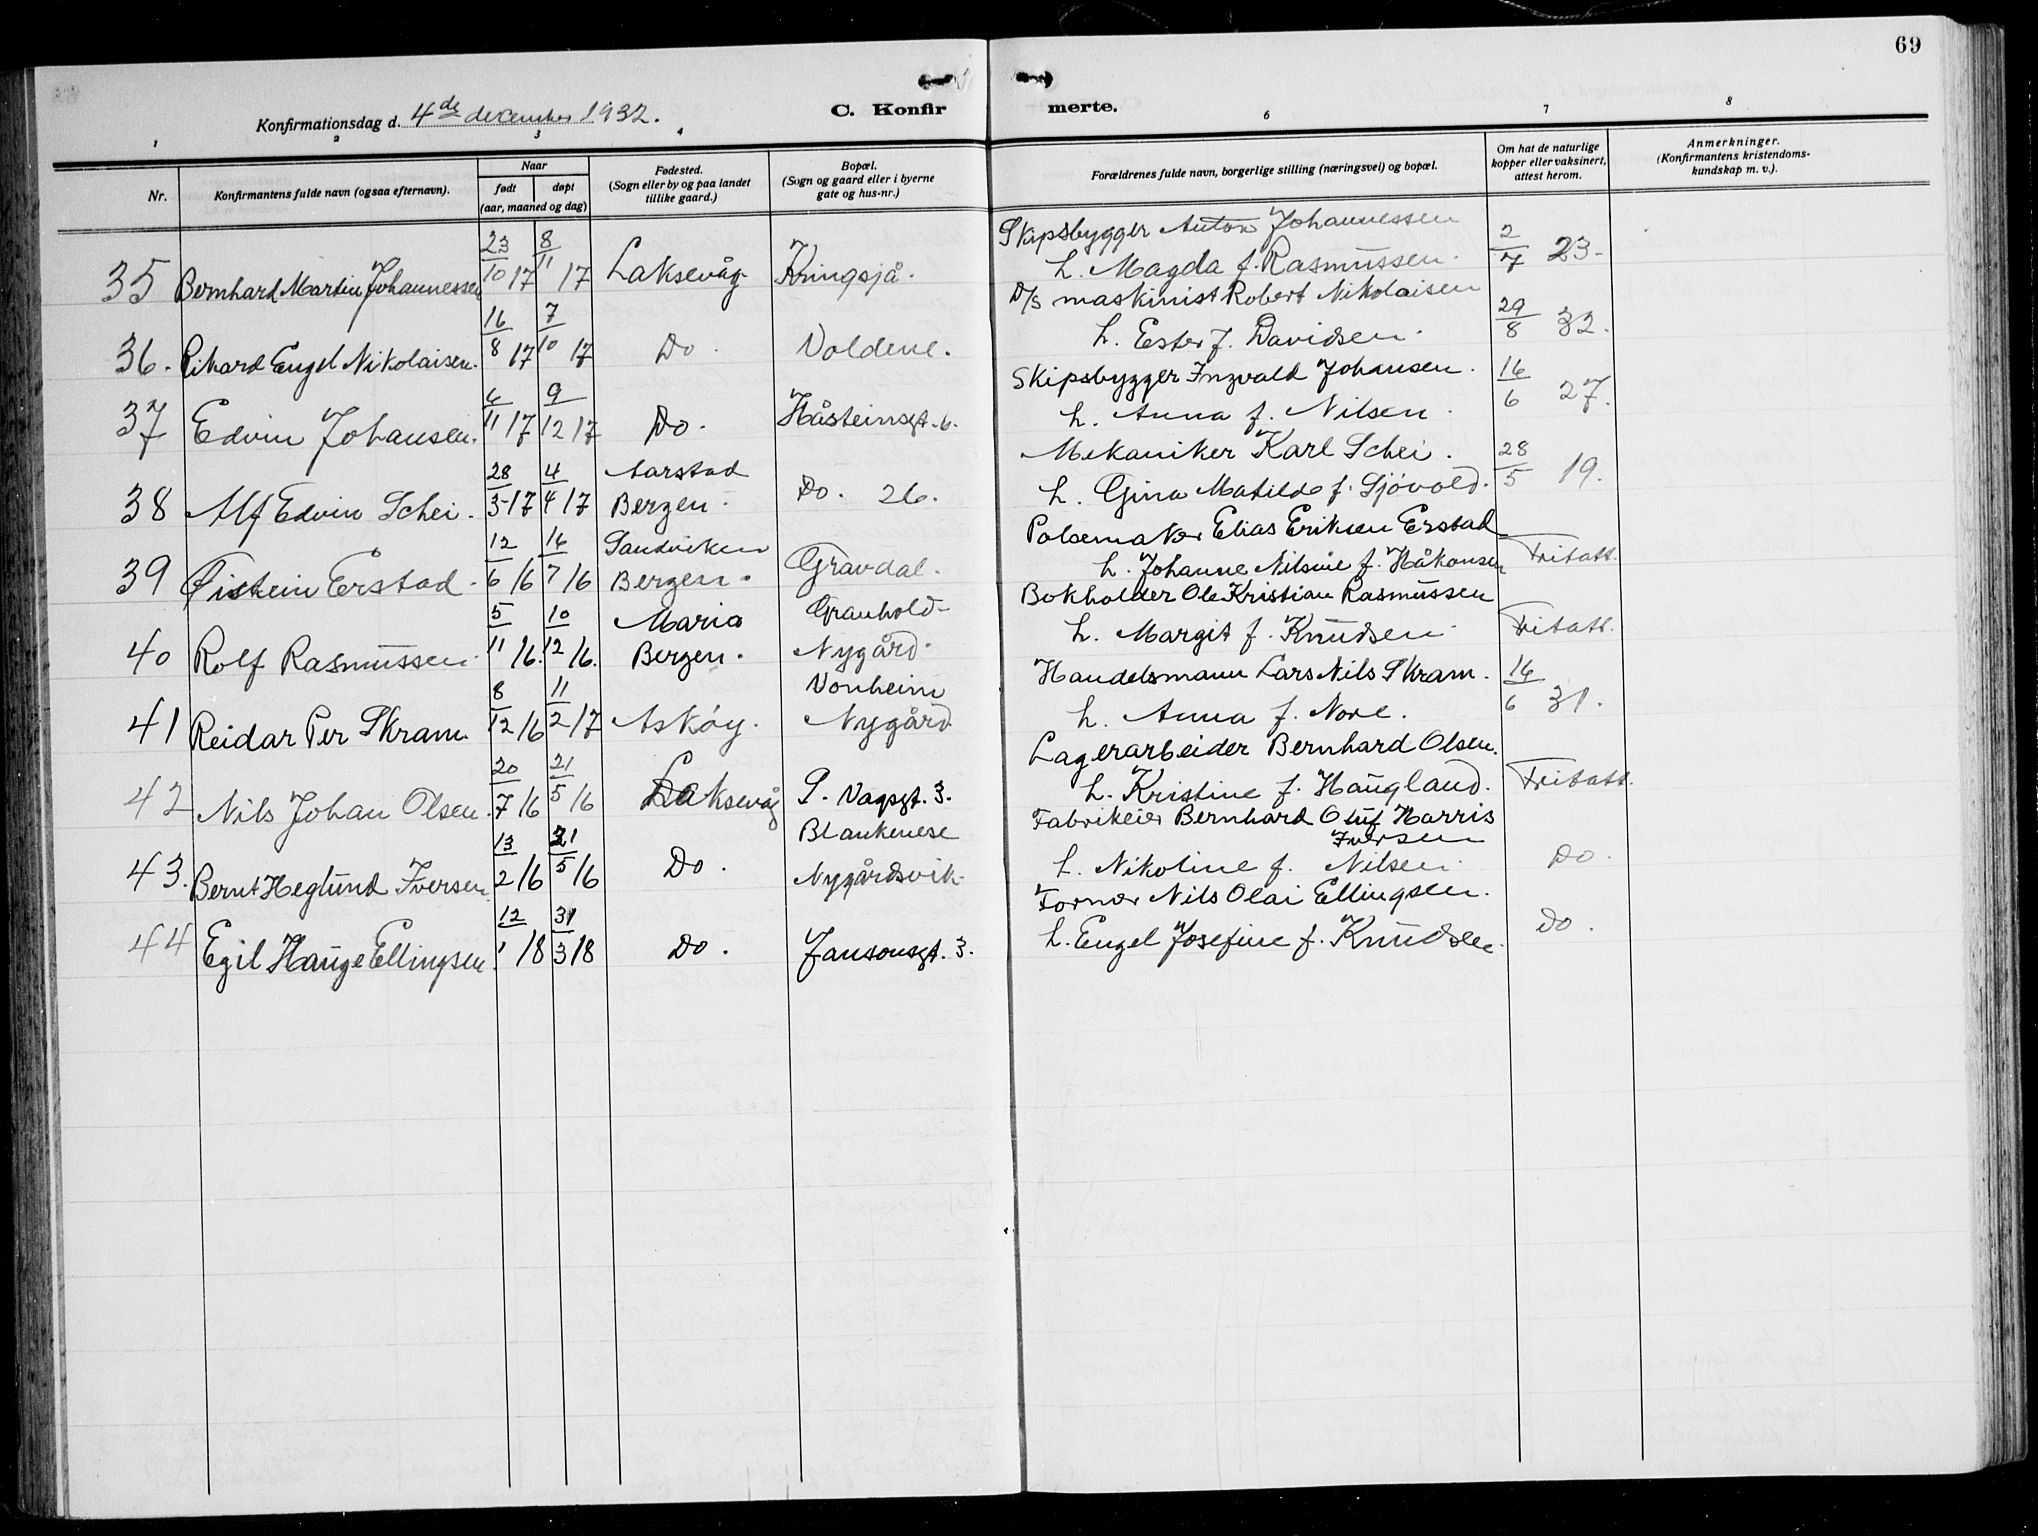 69
Konfirmationsdag d. 4de december 1932.
C. Konfirmerte.
1 2 3 4 6 7 8
Nr.
Konfirmantens fulde navn (ogsaa efternavn).
Naar
født døpt
(aar, maaned og dag)
Fødested.
(Sogn eller by og paa landet
tillike gaard.)
Bopæl.
(Sogn og gaard eller i byerne
gate og hus-nr.)
Forældrenes fulde navn, borgerlige stilling (næringsvei) og bopæl.
Om hat de naturlige
kopper eller vaksinert,
attest herom.
Anmerkninger.
(Konfirmantens kristendoms-
kundskap m. v.).
35 Bernhard Martin Johannessen 23/10 17 8/11 17 Laksevåg Kringsjå. Skipsbygger Anton Johannessen
h. Magda f. Rasmussen. 2/7 23-
36. Rikard Engel Nikolaisen. 16/8 17 7/10 17 Do. Voldene. D/S maskinist Robert Nikolaisen
h. Ester f. Davidsen. 29/8 32.
37 Edvin Johansen. 6/11 17 9/12 17 Do. Håsteinsgt. 6. Skipsbygger Ingvald Johansen.
h. Anna f. Nilsen. 16/6 27.
38 Alf Edvin Schei. 28/3 17 4/4 17 Aarstad
Bergen. Do. 26. Mekaniker Karl Schei.
h. Gina Matilde f. Sjövold. 28/5 19.
39 Øistein Erstad. 12/6 16 16/7 16 Sandviken
Bergen. Gravdal. Pølsemaker Elias Eriksen Erstad
h. Johanne Nilsine f. Håkonsen Fritatt.
40 Rolf Rasmussen 5/11 16. 10/12 16. Maria
Bergen. Granhold-
Nygård. Bokholder Ole Kristian Rasmussen
h. Margit f. Knudsen Fritatt.
41 Reidar Per Skram 8/12 16 11/2 17 Askøy. Vonheim
Nygård Handelsmann Lars Nils Skram.
h. Anna f. Nore. 16/6 31.
42 Nils Johan Olsen. 20/7 16 21/5 16 Laksevåg P. Vagsgt. 3. Lagerarbeider Bernhard Olsen.
h. Kristine f. Haugland. Fritatt.
43. Bernt Heglund Iversen 13/2 16 21/5 16 Do. Blankenese
Nygårdsvik Fabrikeier Bernhard Oluf Harris
Iversen
h. Nikoline f. Nilsen Do.
44 Egil Hauge Ellingsen. 12/1 18 31/3 18 Do. Jansonsgt. 3. Former Nils Olai Ellingsen.
h. Engel Josefine f. Knudsen. Do.